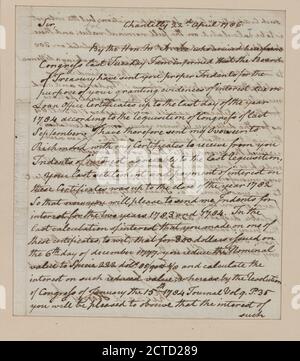 Chantilly 22d April 1786
Sir,
By the Hon. Mr who arrived here from
Congress last Tuesday I am informed that the Board
of Treasury have sent you proper Indents for the
purpose of your granting evidences of interest due on
Loan Office Certificates up to the last day of the year
1784 according to the requisition of Congress of last
September. I have therefore sent my Overseer to
Richmond with my Certificates to receive from you
Indents of interest agreeably to the last requisition.
Your last settlement and payment of interest on
these Certificates was up to the close of the year 1782
So that now you will please to send me Indents for
interest for the two years 1783 and 1784. In the
last calculation of interest that you made on one of
these certificates to wit, that for 300 dollars issued on
the 6th day of december 1777, you reduce the Nominal
value to Specie 222 doll. and calculate the
interest on such reduced value whereas by the Resolution
of Congress of January the 1784 Journal Vol. 9. P. 30
you will be pleased to observe that the interest of
such
alamy
Image ID: 2CTD289
www.alamy.com